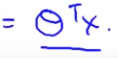 = θᵀx.